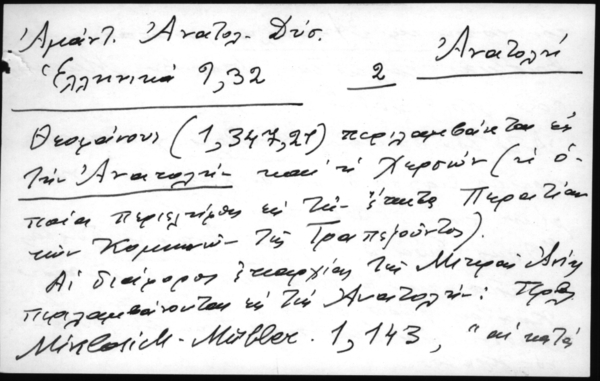 Ἀμάντ. Ἀνατολ. Δύσ.
Ἀνατολή
Ἑλληνικά 9,32
2
Θεοφάνους (1,347,21) περιλαμβάνεται εἰς
τὴν Ἀνατολὴν καὶ ἡ Χερσών (ἡ ὁ-
ποία περιελήφθη εἰς τὴν Περατείαν
τῶν Κομνηνῶν τῆς Τραπεζοῦντος).
Αἱ διάφοροι ἐπαρχίαι τῆς Μικρᾶς Ἀσίας
περιλαμβάνονται εἰς τὴν Ἀνατολήν: Πρβ
Miklosich-Müller. 1,143, "αἱ κατὰ